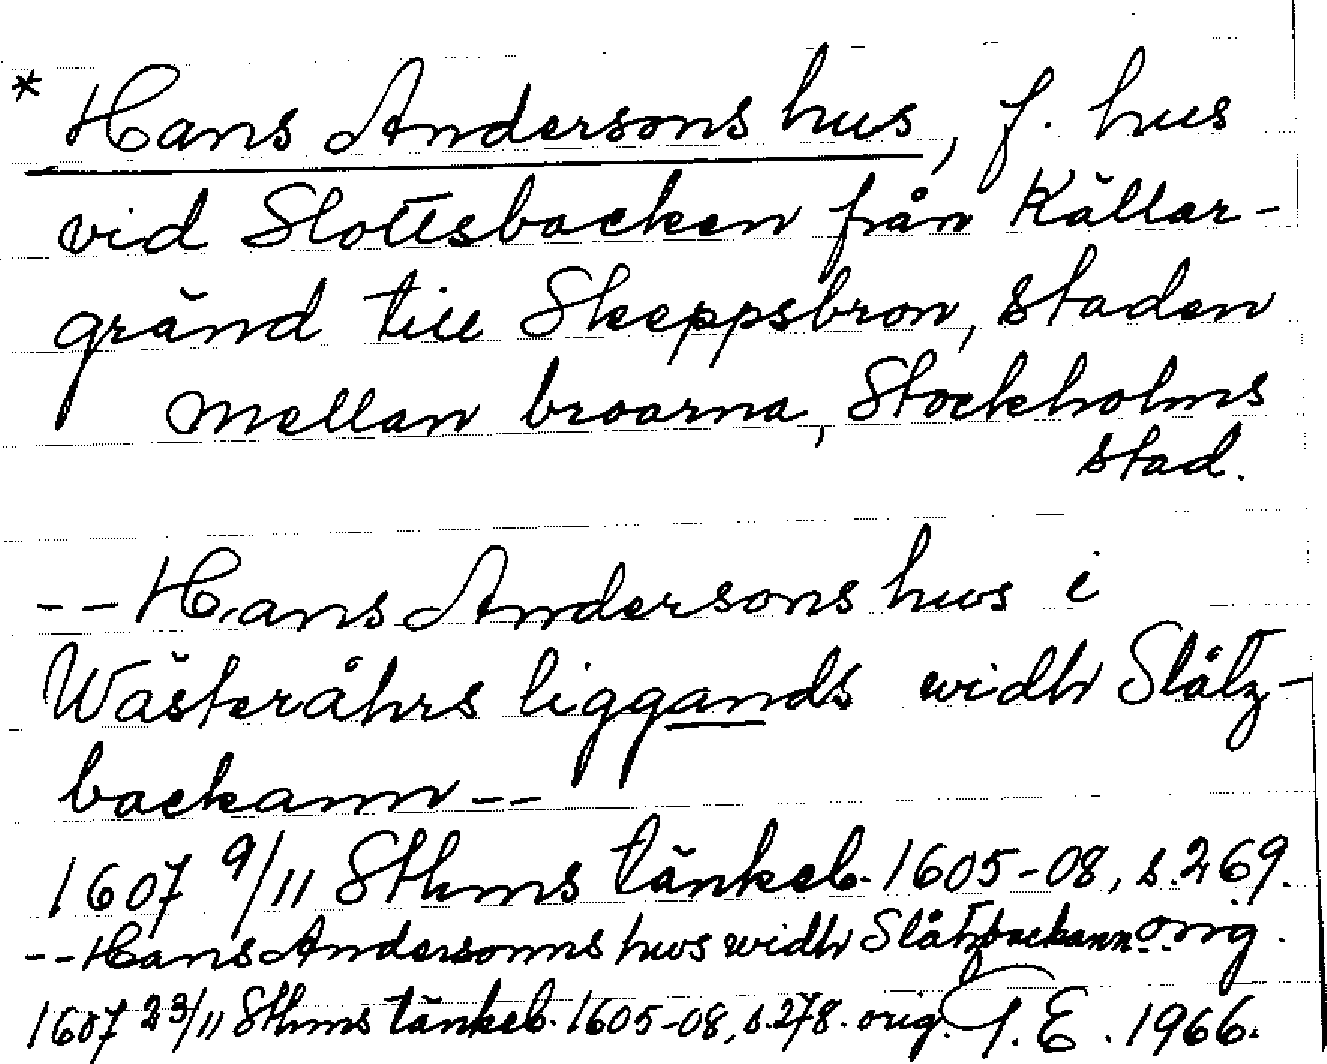 * Hans Andersons hus, f. hus
vid Slottsbacken från Källar-
gränd till Skeppsbron, staden
mellan broarna, Stockholms
stad.
-- Hans Andersons hws i
Wästeråhrs liggands widh Slåtz-
backann --
1607 9/11 Sthms tänkeb. 1605-08, s. 269.
-- Hans Andersonns hws widh Slåtzbackann -- orig.
1607 23/11 Sthms tänkeb. 1605-08, s. 278. orig. T. E. 1966.